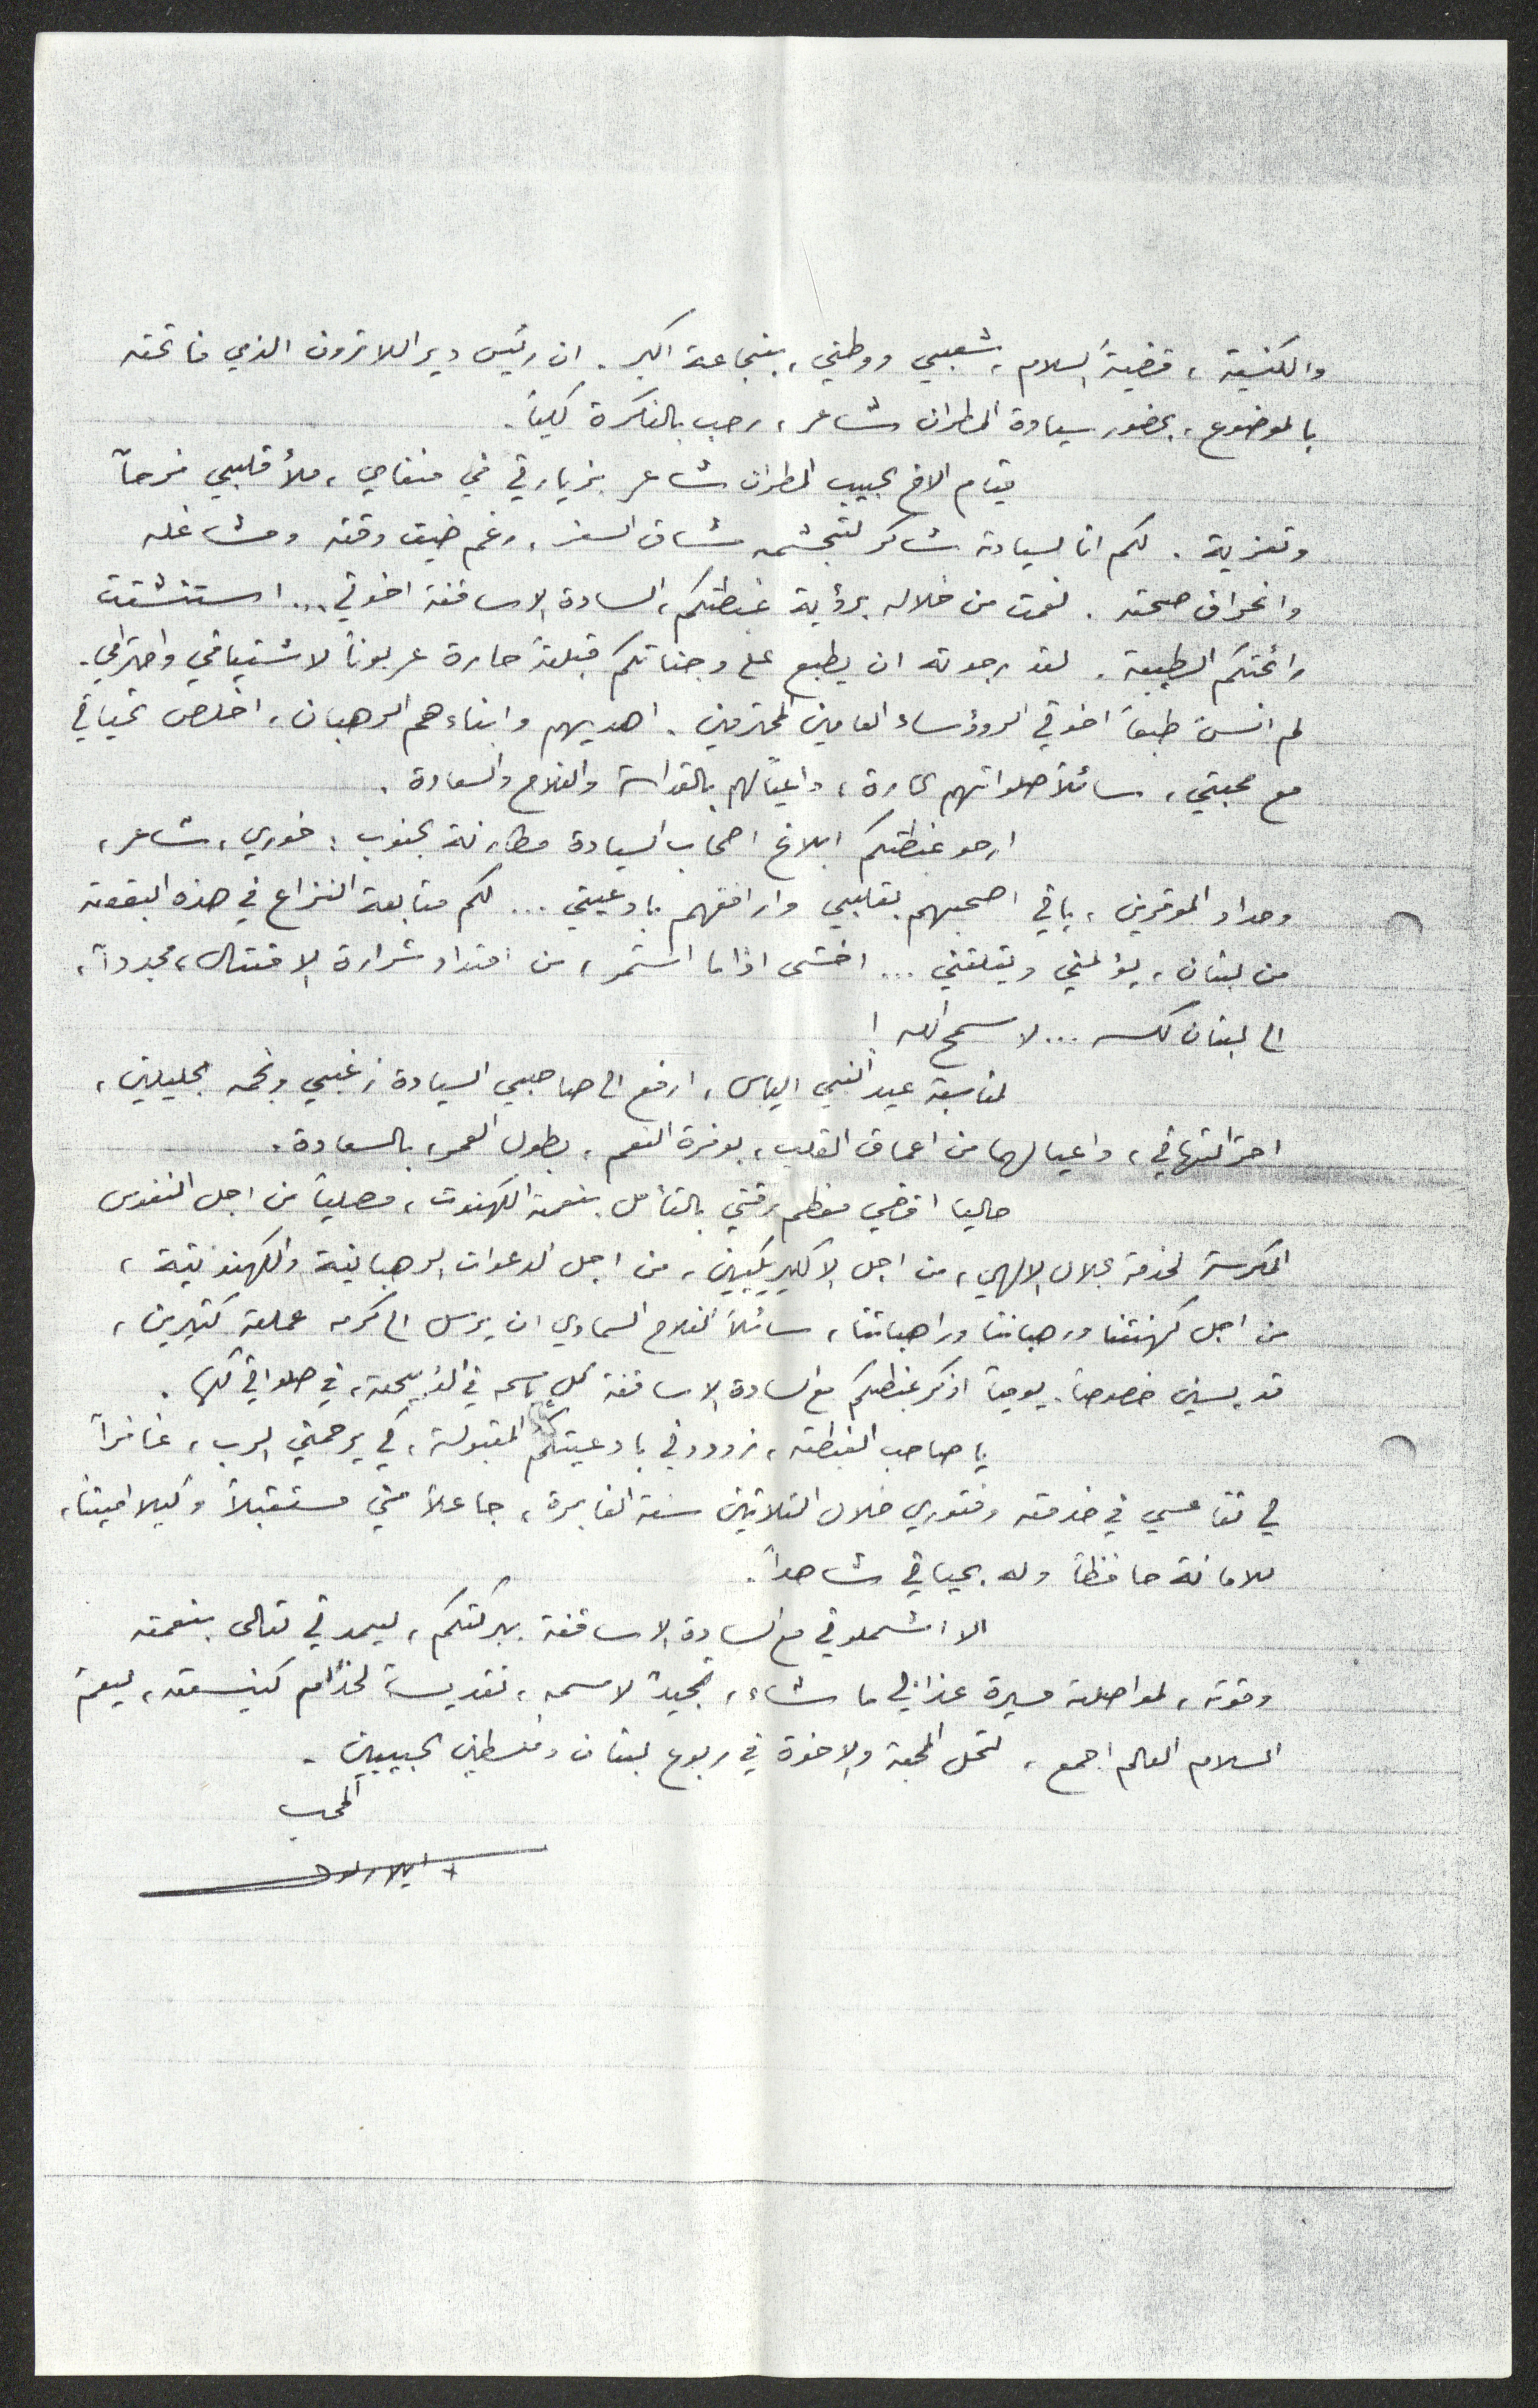 والكنيسة ، قضية السلام ، شعبي ووطني ، بنجاعة اكبر . ان رئيس دير اللاترون الذي فاتحته
بالموضوع ، بحضور سيادة المطران شاعر ، رحب بالفكرة كلياً .
قيام الاخ الحبيب المطران شاعر بزيارتي في منفاي ، ملأ قلبي فرحاً
وتعزية . لكم انا لسيادته شاكر لتجشمه مشاق السفر ، رغم ضيق وقته ومشاغله
وانحراف صحته . نعمت من خلاله برؤية غبطتكم ، السادة الاساقفة اخوتي ... استنشقت
رائحتكم الطيبة . لقد رجوته ان يطبع على وجناتكم قبلة حارة عربوناً لاشتياقي واحترامي .
لم انسَ طبعاً اخوتي الرؤساء العامين المحترمين . اهديهم وابناءهم الرهبان ، اخلص تحياتي
مع محبتي ، سائلاً صلواتهم الحارة ، داعياً لهم بالقداسة والفلاح والسعادة .
ارجو غبطتكم ابلاغ اصحاب السيادة مطارنة الجنوب : خوري ، شاعر ،
وحداد الموقرين ، باني اصحبهم بقلبي وارافقهم بادعيتي ... لكم متابعة النزاع في هذه البقعة
من لبنان ، يؤلمني ويقلقني ... اخشى اذا ما استمر ، من امتداد شرارة الاقتتال ، مجدداً ،
الى لبنان كله ... لا سمح الله !
لمناسبة عيد النبي الياس ، ارفع الى صاحبي السيادة زغبي ونجمه الجليلين ،
احر التهاني ، داعيا لهما من اعماق القلب ، بوفرة النعم ، بطول العمر ، بالسعادة .
حاليا اقضي معظم وقتي بالتأمل بنعمة الكهنوت ، مصلياً من اجل النفوس
المكرسة لخدمة الجلال الالهي ، من اجل الاكليريكيين ، من اجل الدعوات الرهبانية والكهنوتية ،
من اجل كهنتنا ورهباننا وراهباتنا ، سائلاً الفلاح السماوي ان يرسل الى كرمه عملة كثيرين ،
قديسين خصوصاً . يومياً اذكر غبطتكم مع السادة الاساقفة كل باسمه في الذبيحة ، في صلواتي كلها .
يا صاحب الغبطة ، زودوني بادعيتكم المقبولة ، كي يرحمني الرب ، غافراً
لي تقاعسي في خدمته وفتوري خلال الثلاثين سنة الغابرة ، جاعلاً مني مستقبلاً وكيلا امينا ،
للامانة حافظاً وله بحياتي شاهداً .
الا اشملوني مع السادة الاساقفة ببركتكم ، ليمدني تعالى بنعمته
وقوته ، لمواصلة مسيرة عذابي ما شاء ، تمجيداً لاسمه ، تقديسا لخدّام كنيسته ، ليعمّ
السلام العالم اجمع ، لتحل المحبة والاخوة في ربوع لبنان وفلسطين الحبيبين .
المحب